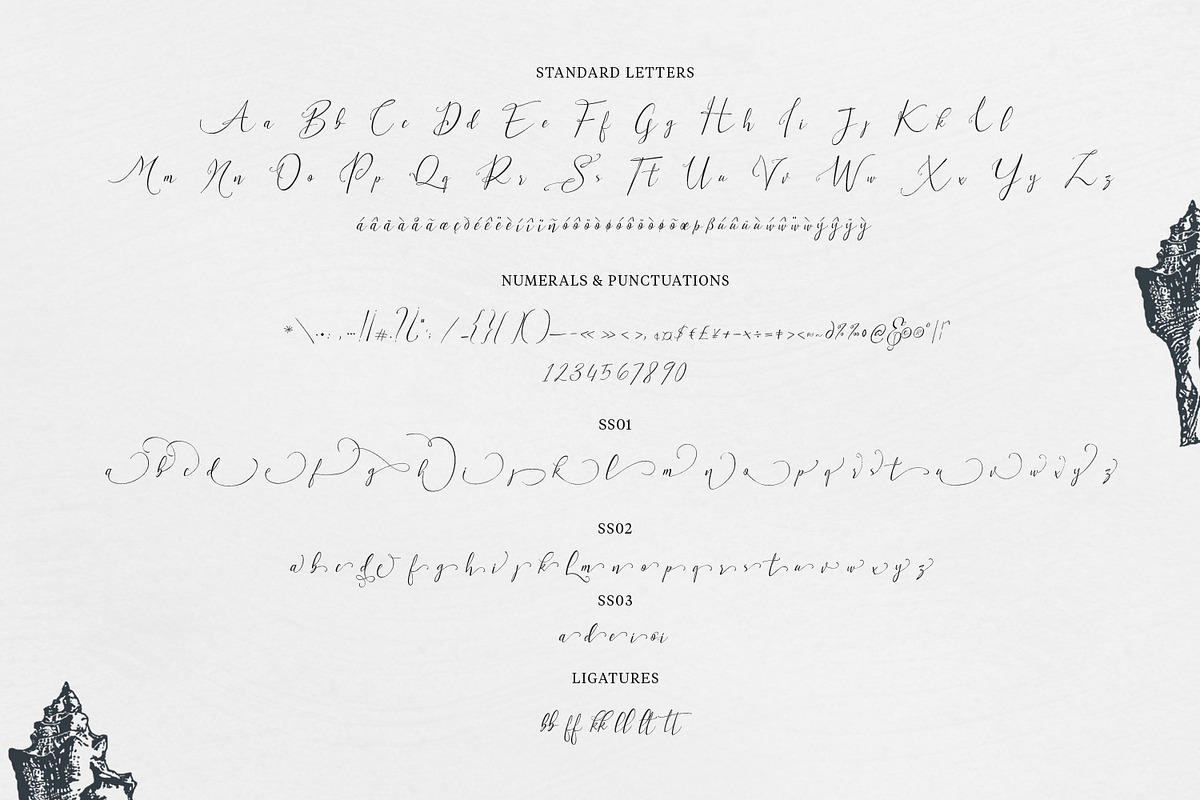 STANDARD LETTERS
Aa Bb Cc Dd Ee Ff Gg Hh Ii Jj Kk Ll
Mm Nn Oo Pp Qq Rr Ss Tt Uu Vv Ww Xx Yy Zz
NUMERALS & PUNCTUATIONS
1234567890
SS01
a b c d e f g h i j k l m n o p q r s t u v w x y z
SS02
a b c d e f g h i j k l m n o p q r s t u v w x y z
SS03
a d e i oi
LIGATURES
bb ff kk ll lt tt